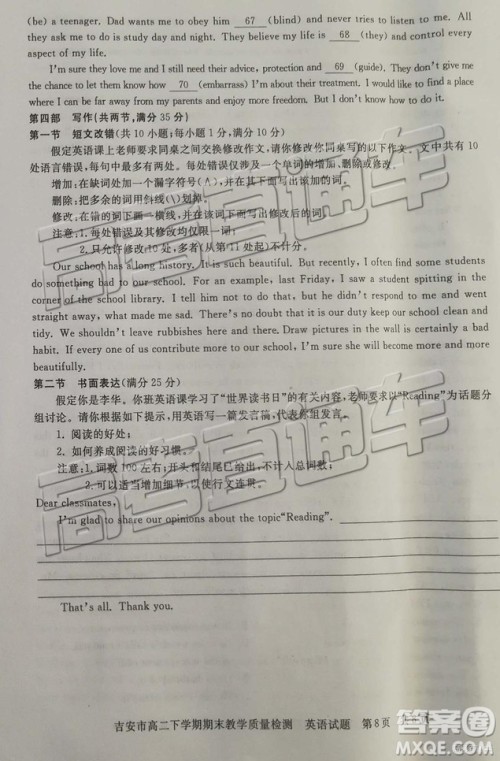 (be) a teenager. Dad wants to obey him 67 (blind) and never tries to listen to me. All
they want me to do is study day and night. They believe my life is 68 (they) and control every
aspect of my life.
I'm sure they love me and I still need their advice, protection and 69 (guide). They don't give
me the chance to let them know how 70 (embarrass) I'm about their treatment. I would like to find a place
where I can be far away from my parents and enjoy more freedom. But I don't know how to do it.
第四部 写作(共两节,满分 35 分)
第一节 短文改错(共 10 小题;每小题 1 分,满分 10 分)
假定英语课上老师要求同桌之间交换修改作文,请你修改你同桌写的以下作文。文中共有 10
处语言错误,每句中最多有两处。每处错误仅涉及一个单词的增加、删除或修改。
增加:在缺词处加一个漏字符号(∧),并在其下面写出该加的词。
删除:把多余的词用斜线(\)划掉。
修改:在错的词下画一横线,并在该词下面写出修改后的词。
注意:1. 每处错误及其修改均仅限一词;
2. 只允许修改 10 处,多者(从第 11 处起)不计分。
Our school has a long history. It is big and beautiful. But recently, I often find some students
do something bad to our school. For an example, last Friday, I saw a student spitting in the
corner of the school library. I tell him not to do that, but he refused to listen to me and went
straight away, what made me sad. There's no doubt that it is our duty keep our school clean and
tidy. We shouldn't leave rubbishes here and there. Draw pictures in the wall is certainly a bad
habit. If every one of us contribute more to our school, I'm sure she will become more and more
beautifully.
第二节 书面表达(满分 25 分)
假定你是李华。你班英语课学习了“世界读书日”的有关内容,老师要求以“Reading”为话题分
组讨论。请你根据以下提示,用英语写一篇发言稿,代表你组发言。
1. 阅读的好处;
2. 如何养成阅读的好习惯。
注意:1. 词数 100 左右;开头和结尾已给出,不计入总词数;
2. 可以适当增加细节,以使行文连贯。
Dear classmates,
I'm glad to share our opinions about the topic"Reading".
That's all. Thank you.
吉安市高二下学期期末教学质量检测 英语试题 第 8 页
高考直通车
高考直通车
高考直通车
答案圈
MXQE.COM